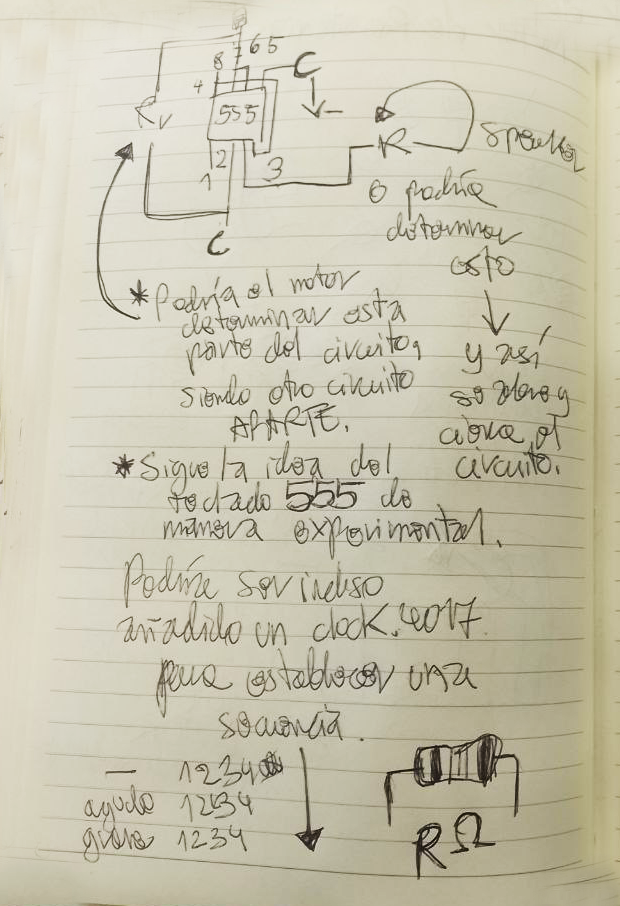 8 7 6 5
4
C
Rv
555
-
1 2 3
R
Speaker
C
o podría
determinar
esto
y así
se abre y
cierra el
circuito.
* Podría el motor
determinar esta
parte del circuito,
siendo otro circuito
APARTE.
* Sigue la idea del
teclado 555 de
manera experimental.
Podría ser incluso
añadido un clock. 4017
para establecer una
secuencia.
— 1234
agudo 1234
grave 1234
R Ω